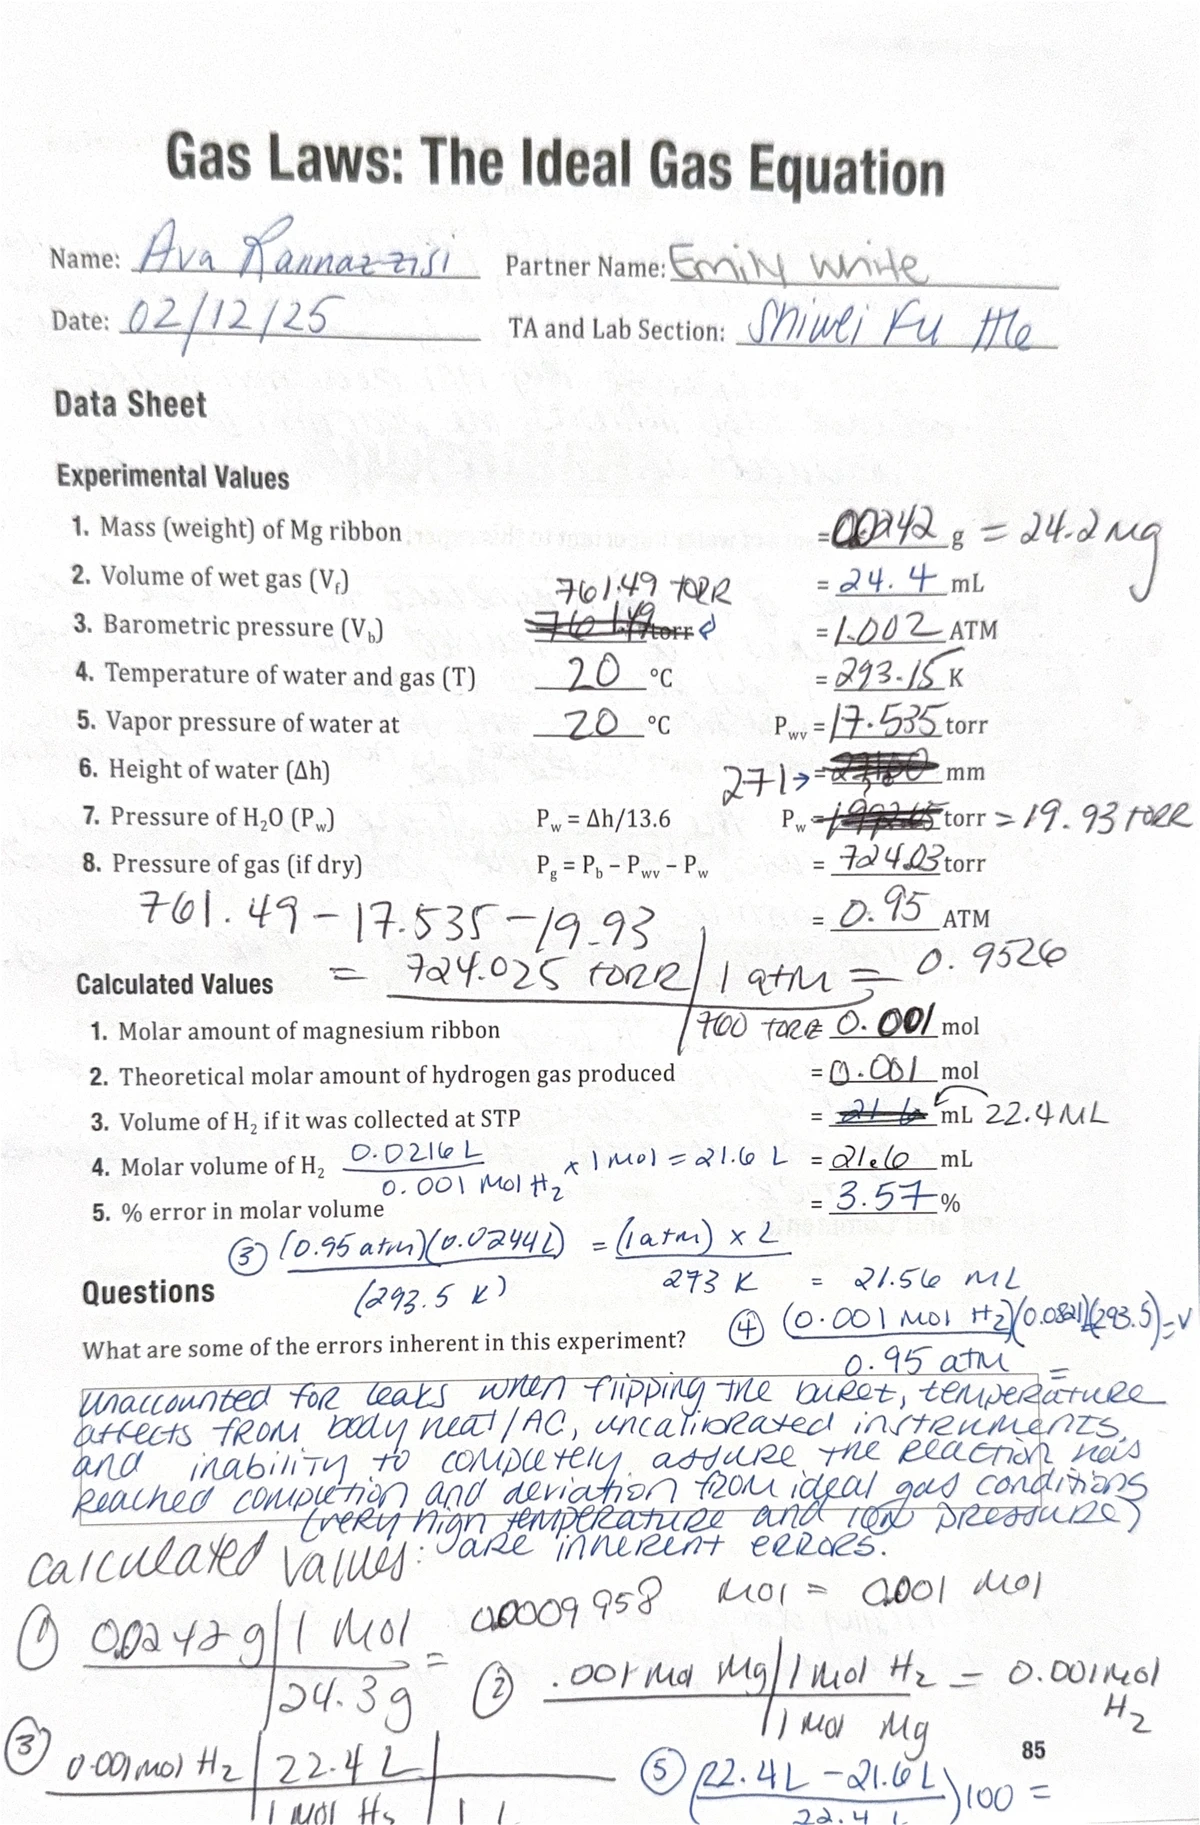 Gas Laws: The Ideal Gas Equation
Name: Ava Rannazzisi Partner Name: Emily White
Date: 02/12/25 TA and Lab Section: Shiwei Fu
Data Sheet
Experimental Values
1. Mass (weight) of Mg ribbon = 0.0242 g = 24.2 mg
2. Volume of wet gas (Vf) = 24.4 mL
761.49 TORR
3. Barometric pressure (Vb) torr = 1.002 ATM
4. Temperature of water and gas (T) 20 °C = 293.15 K
5. Vapor pressure of water at 20 °C Pwv = 17.535 torr
6. Height of water (Δh) 271 → = mm
7. Pressure of H₂O (Pw) Pw = Δh/13.6 Pw = torr = 19.93 TORR
8. Pressure of gas (if dry) Pg = Pb – Pwv – Pw = 724.03 torr
761.49 - 17.535 - 19.93 = 0.95 ATM
= 724.025 TORR | 1 atm = 0.9526
760 TORR
Calculated Values
1. Molar amount of magnesium ribbon = 0.001 mol
2. Theoretical molar amount of hydrogen gas produced = 0.001 mol
3. Volume of H₂ if it was collected at STP = 21.6 mL 22.4 ML
4. Molar volume of H₂ 0.0216 L / 0.001 mol H₂ x 1 mol = 21.6 L = 21.6 mL
5. % error in molar volume = 3.57 %
③ (0.95 atm)(0.0244L) / (293.5 K) = (1 atm) x L / 273 K = 21.56 mL
Questions
④ (0.001 mol H₂)(0.0821)(293.5) / 0.95 atm = V
=
What are some of the errors inherent in this experiment?
Unaccounted for leaks when flipping the buret, temperature
affects from body heat/AC, uncalibrated instruments,
and inability to completely assure the reaction has
reached completion and deviation from ideal gas conditions
(very high temperature and low pressure)
are inherent errors.
calculated values:
① 0.0242 g | 1 mol / 24.3 g = 0.0009958 mol = 0.001 mol
② .001 mol Mg | 1 mol H₂ / 1 mol Mg = 0.001 mol H₂
③ 0.001 mol H₂ | 22.4 L / 1 mol H₂
85
⑤ (22.4 L - 21.6 L / 22.4 L) 100 =